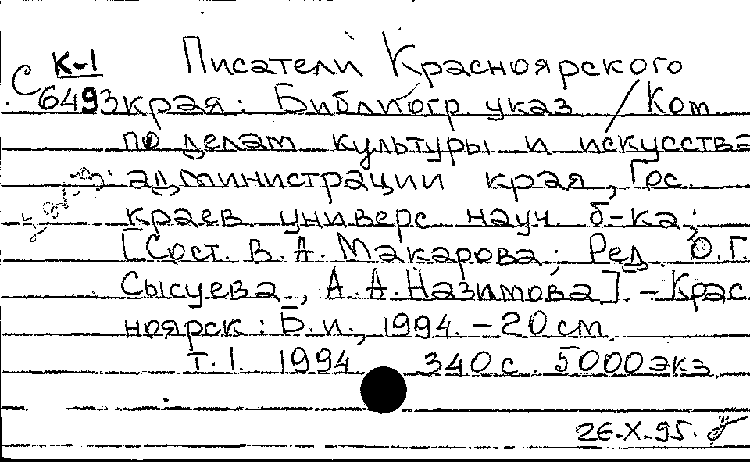 К-1 Писатели Красноярского
С 6493 края: Библиогр указ / Ком
по делам культуры и искусства
администрации края, Гос.
краев универс науч б-ка;
[Сост. В. А. Макарова; Ред О.Г.
Сысуева, А. А. Назимова]. - Крас
ноярск: Б.и., 1994. - 20 см
т. 1. 1994 340 с. 5000 экз
26.X.95.